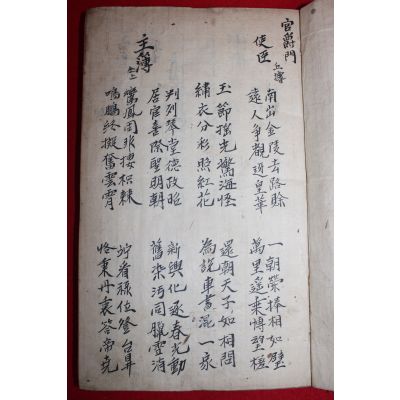 官爵門
使臣
南出金陵去路賖 一朝榮捧相如璧
遠人爭觀返皇華 萬里遙乗博望槎
玉節搖光驚海怪 還朝天子如相問
繡衣分彩照紅花 為說車書混一家
主簿
判列琴堂德政昭 新興化逐春光動
居官喜際聖明朝 舊染汚同臘雪消
鸞鳳固非棲枳棘 佇看祿位登台鼎
鳴鵬終擬奮雲霄 恪秉丹衷答帝堯